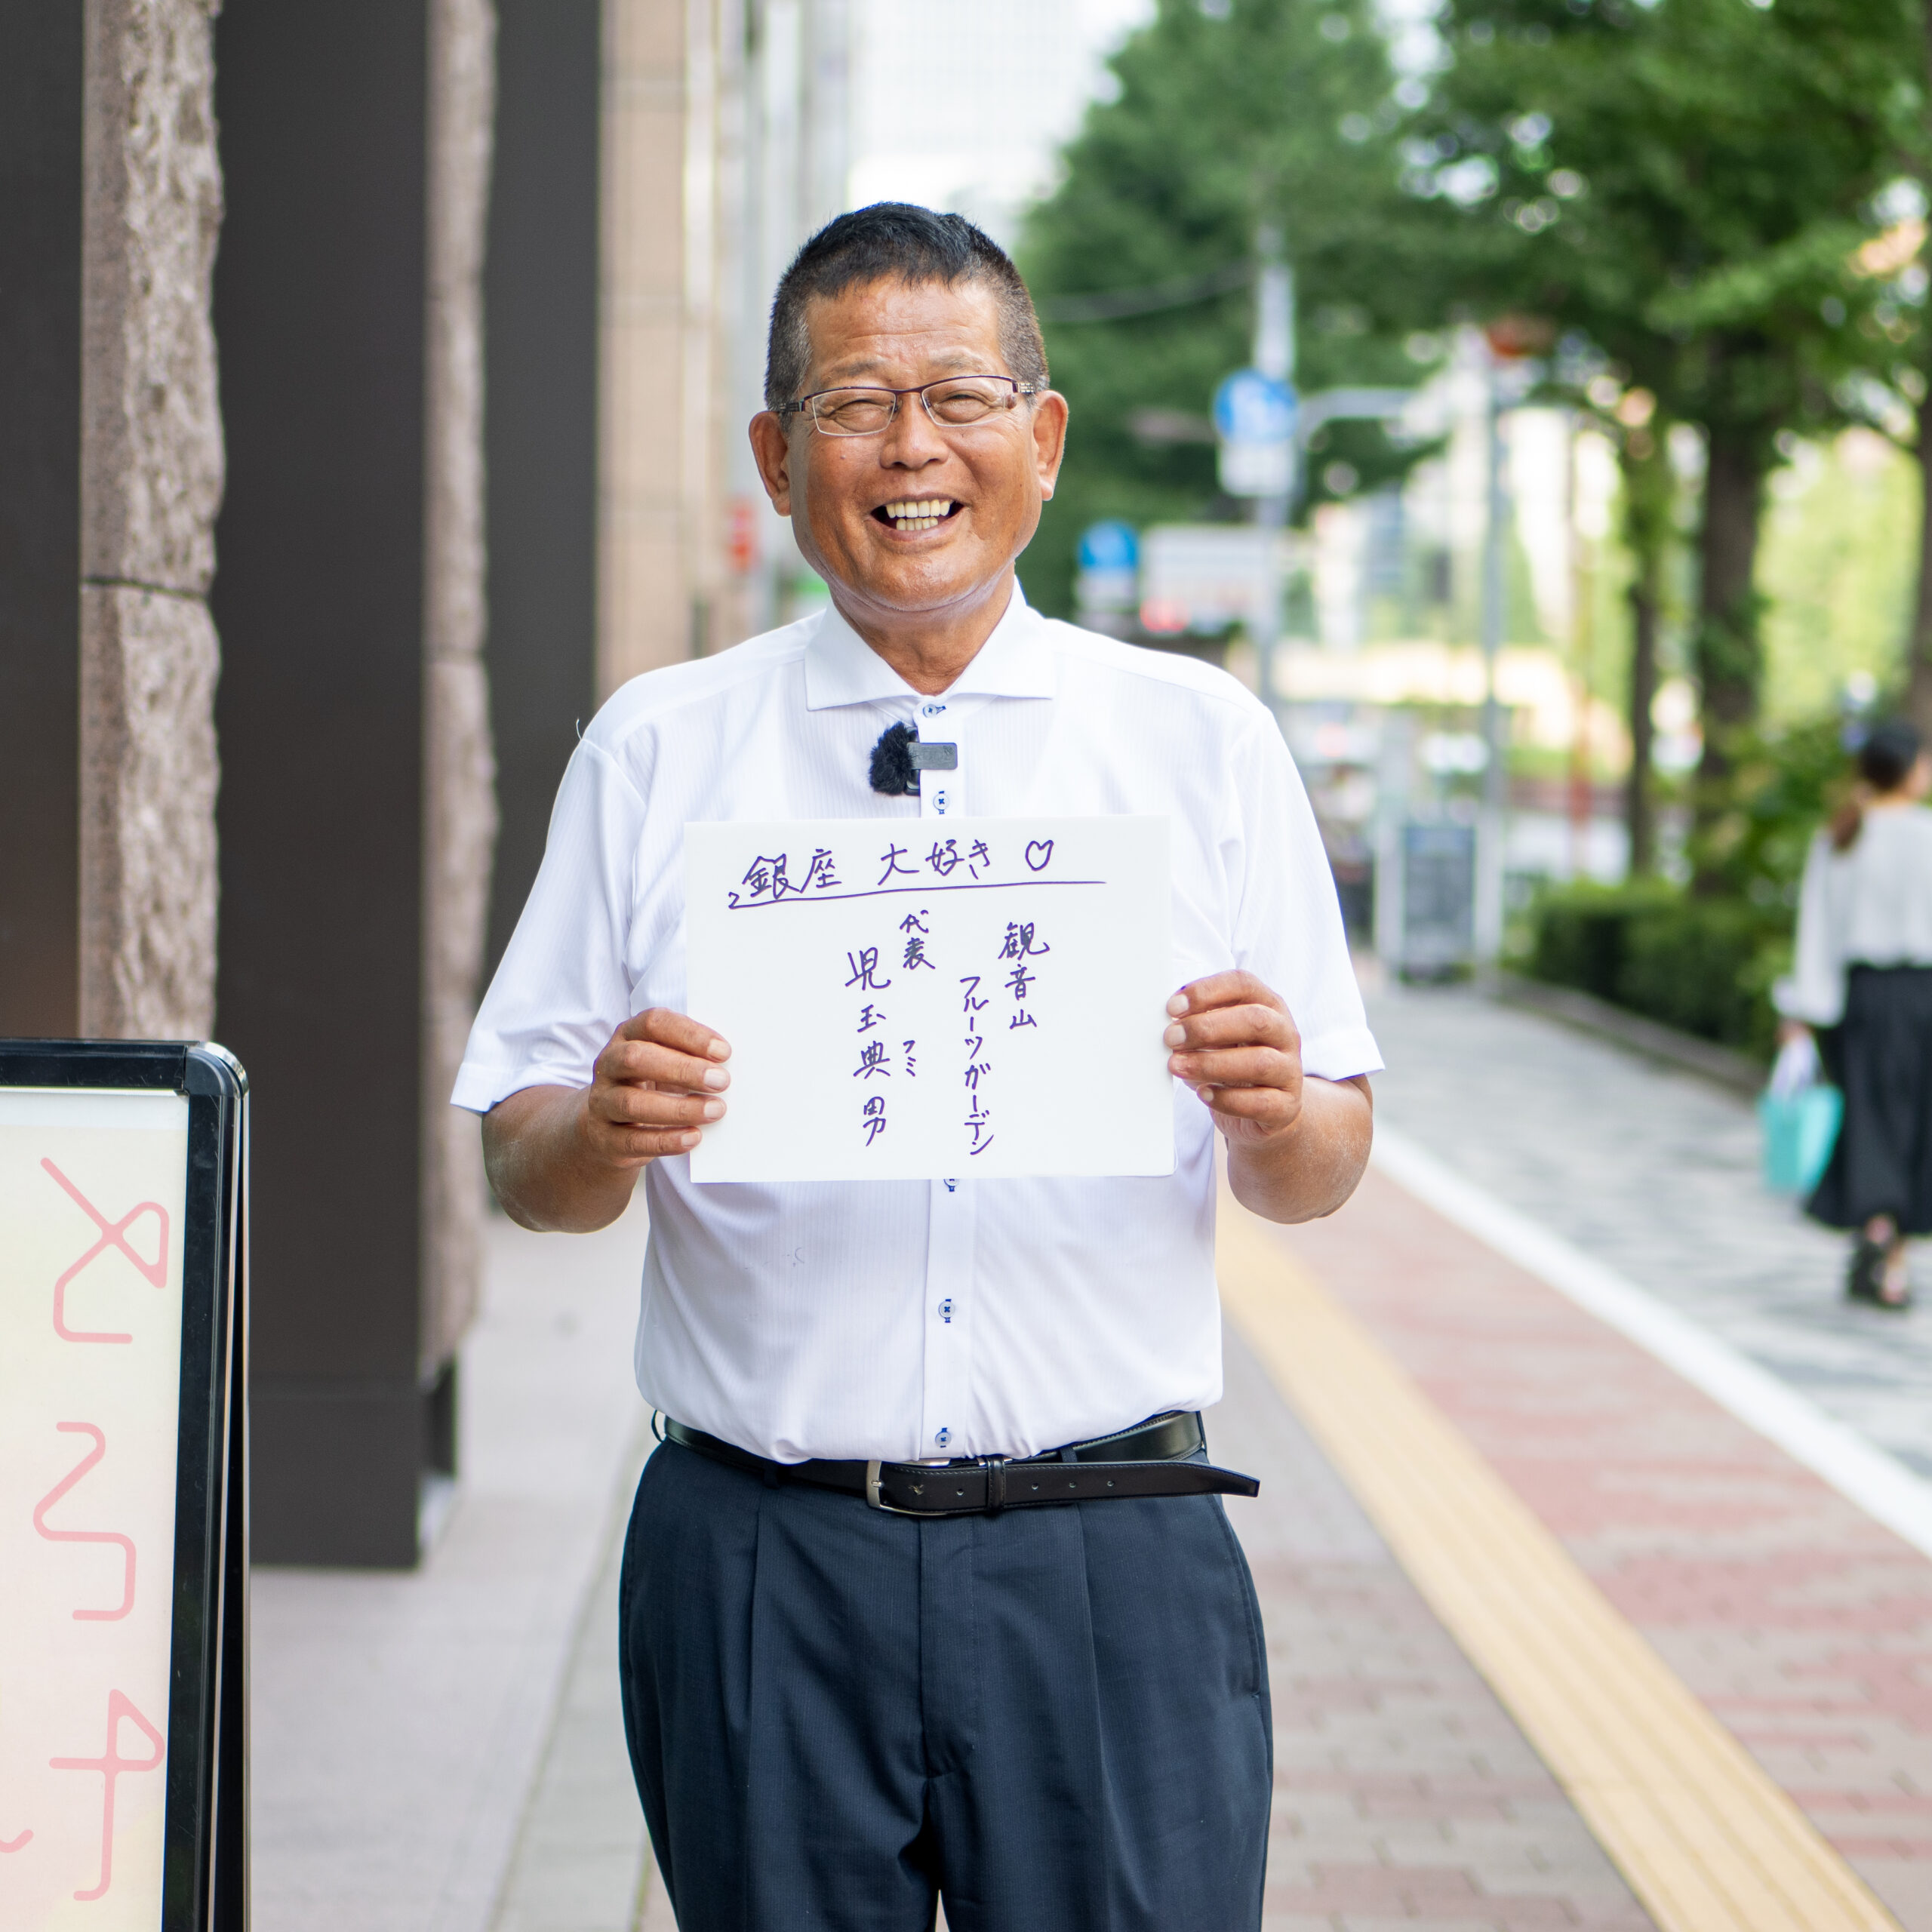 銀座 大好き ♡
観音山
フルーツガーデン
代表
児玉典男
フミ